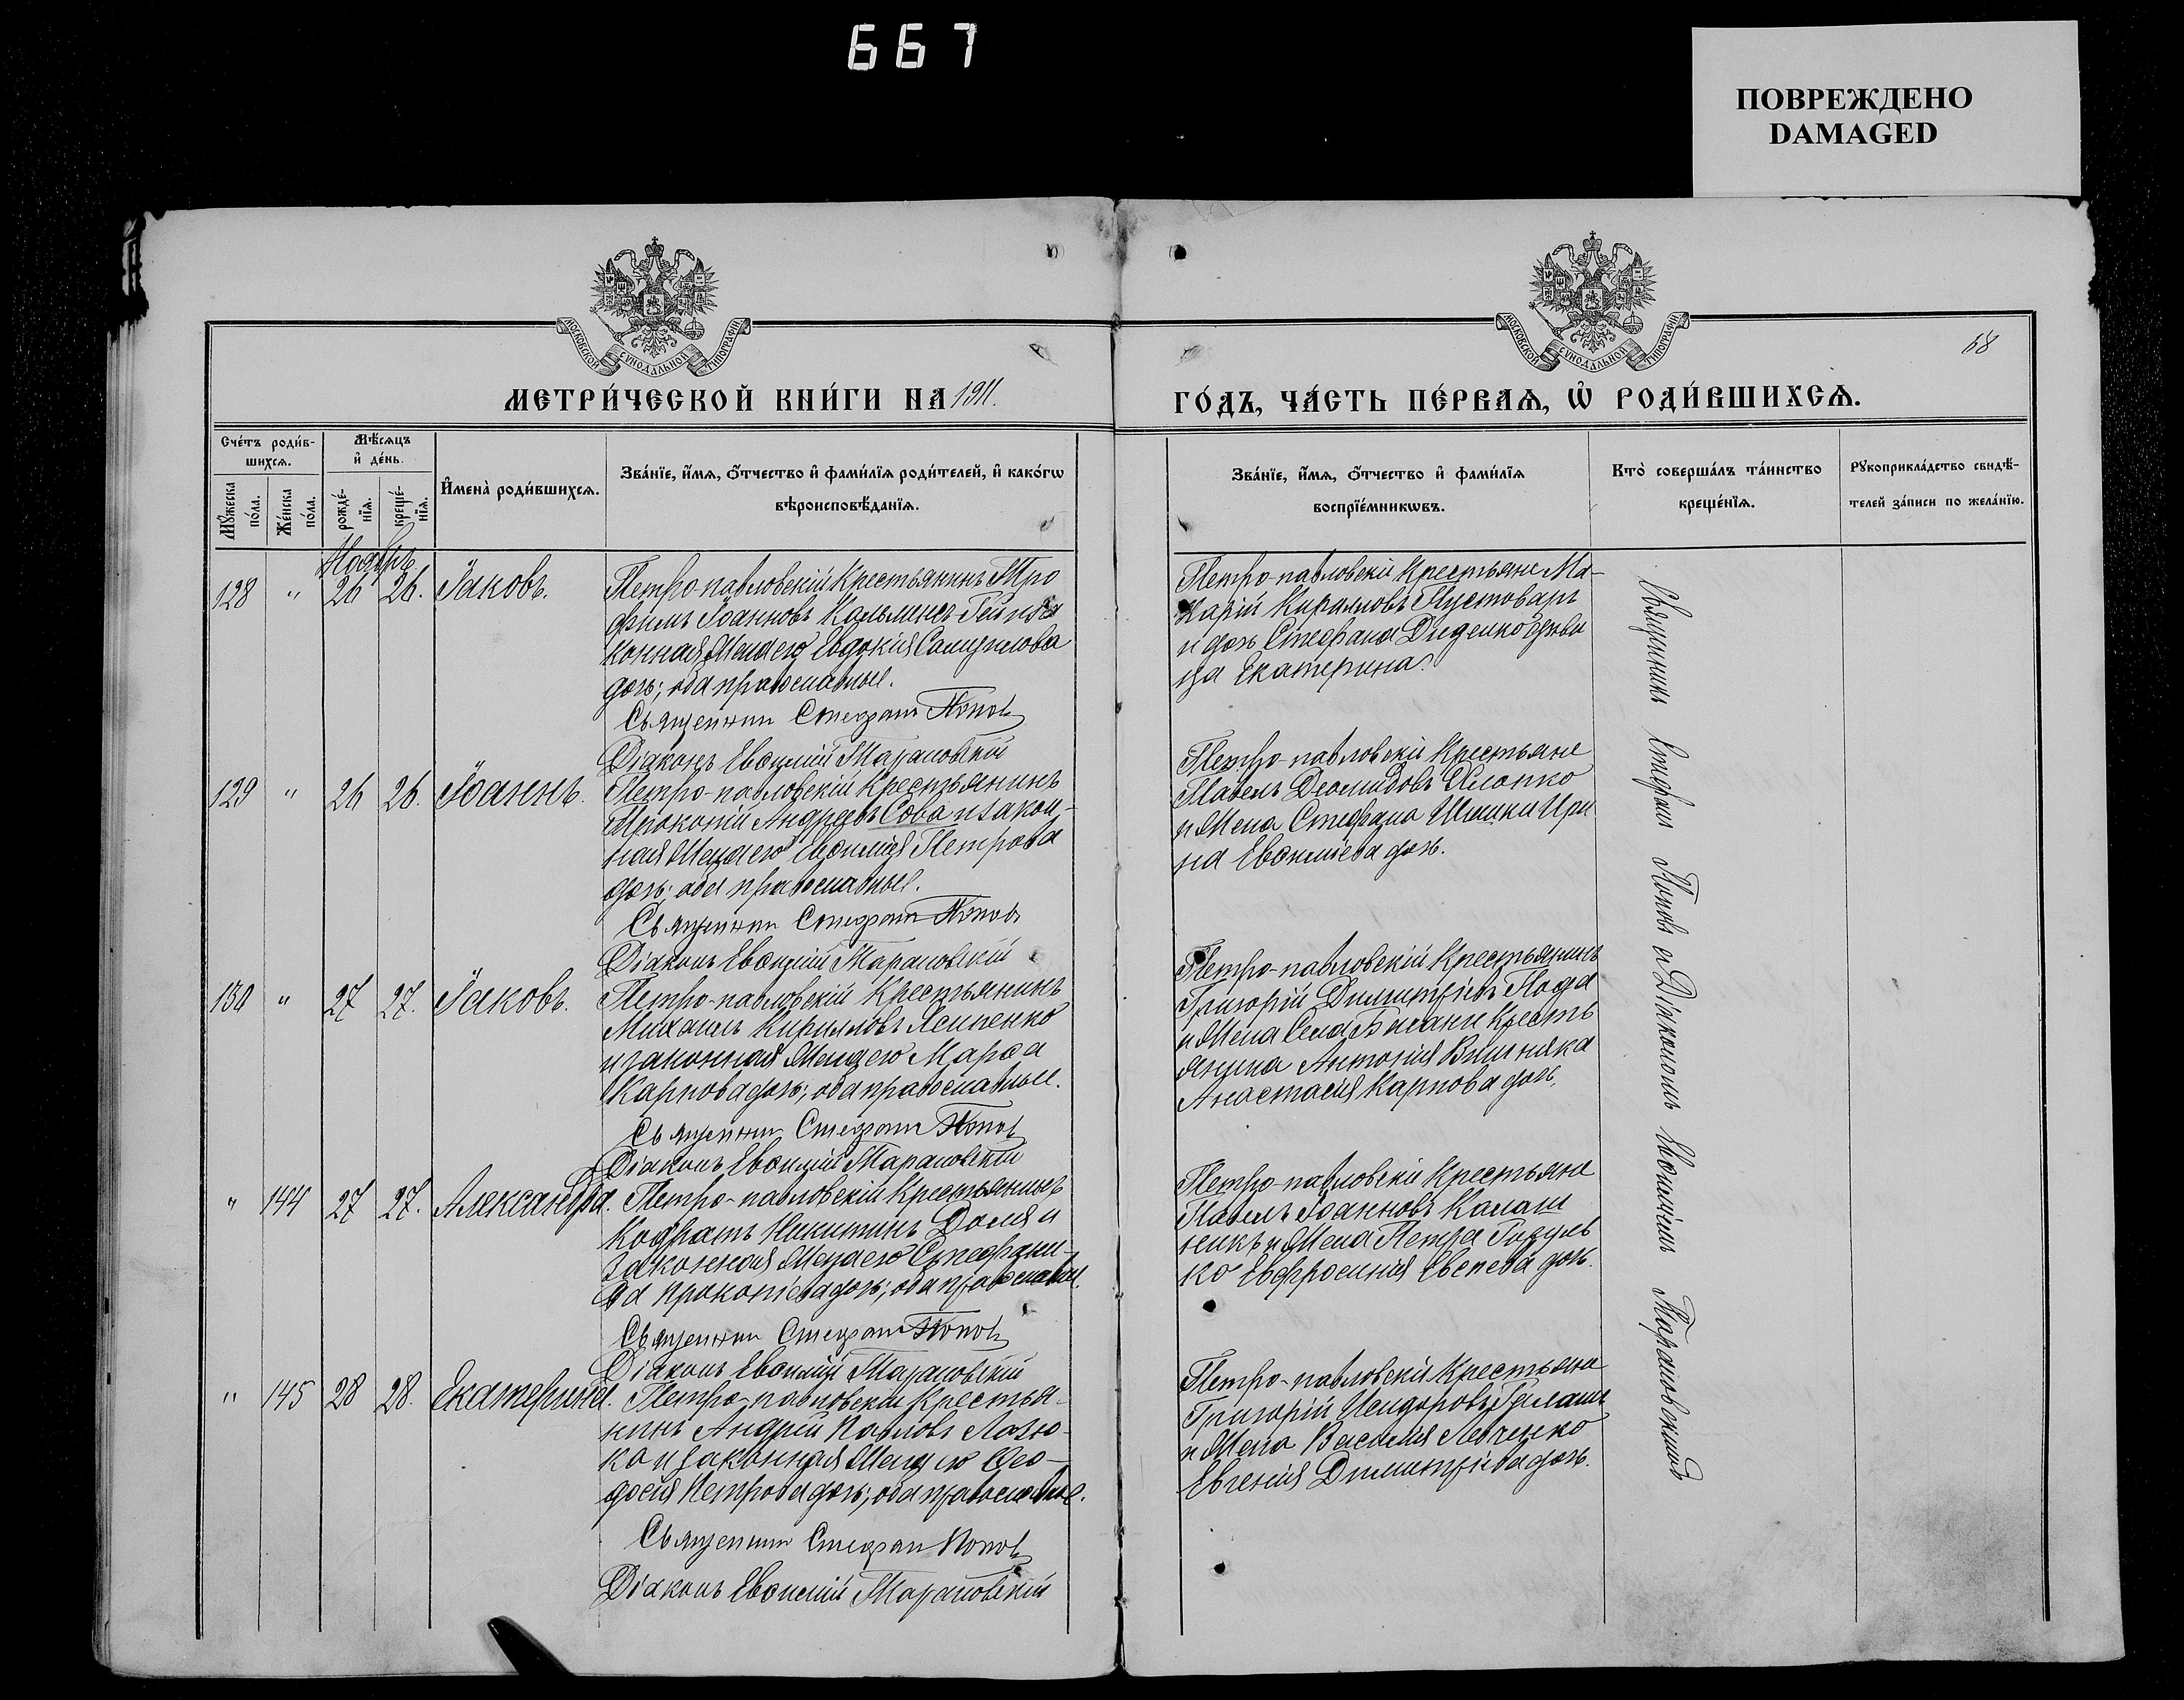 667
ПОВРЕЖДЕНО
DAMAGED
МОСКОВСКОЙ СѴНОДАЛЬНОЙ ТИПОГРАФІИ
МОСКОВСКОЙ СѴНОДАЛЬНОЙ ТИПОГРАФІИ
68
МЕТРИ́ЧЕСКОЙ КНИ́ГИ НА 1911.
ГО́ДЪ, ЧА́СТЬ ПЕ́РВАѦ, Ѡ҆ РОДИ́ВШИХСѦ.
Сче́тъ роди́в-
шихсѧ.
Мꙋ́жеска
по́ла.
Же́нска
по́ла.
Мѣ́сѧцъ
и҆ де́нь.
рожде́-
нїѧ.
креще́-
нїѧ.
И҆мена̀ роди́вшихсѧ.
Зва́нїе, и҆́мѧ, ѻ҆́тчество и҆ фами́лїѧ роди́телей, и҆ како́гѡ
вѣроисповѣ́данїѧ.
Зва́нїе, и҆́мѧ, ѻ҆́тчество и҆ фами́лїѧ
воспрїе́мникѡвъ.
Кто̀ соверша́лъ та́инство
креще́нїѧ.
Рꙋкоприкла́дство свидѣ́-
телей за́писи по жела́нїю.
Ноябрь
128 " 26 26. Іаковъ.
Петро-павловскій Крестьянинъ Тро
фимъ Іоанновъ
конная Жена его Евдокія Самуилова
дочь; оба православные.
Священникъ Стефанъ Поповъ
Діаконъ Евѳимій Тарановскій
Петро-павловскіе Крестьяне Ма-
карій Кирилловъ Пустоваръ
и дочь Стефана Диденко дѣви
ца Екатерина.
129 " 26 26. Іоаннъ.
Петро-павловскій Крестьянинъ
Прокопій Андреевъ Сова и закон-
ная Жена его Евѳимія Петрова
дочь; оба православные.
Священникъ Стефанъ Поповъ
Діаконъ Евѳимій Тарановскій
Петро-павловскіе Крестьяне
Павелъ Деомидовъ Хлопко
и Жена Стефана Шишки Ири
на Евѳиміева дочь.
130 " 27 27. Іаковъ.
Петро-павловскій Крестьянинъ
Михаилъ Кирилловъ Ясипенко
и законная Жена его Марѳа
Карпова дочь; оба православные.
Священникъ Стефанъ Поповъ
Діаконъ Евѳимій Тарановскій
Петро-павловскій Крестьянинъ
Григорій Димитріевъ
и Жена Села Крестъ
янина Антонія Вишняка
Анастасія Карпова дочь.
" 144 27 27. Александра.
Петро-павловскій Крестьянинъ
Кодратъ Никитинъ Доля и
законная Жена его Стефани-
да Прокопіева дочь; оба православн.
Священникъ Стефанъ Поповъ
Діаконъ Евѳимій Тарановскій
Петро-павловскіе Крестьяне
Павелъ Іоанновъ Калаш
никъ и Жена Петра
ко Евфросинія дочь.
" 145 28 28. Екатерина.
Петро-павловскій Крестья-
нинъ Андрей Павловъ Лазю-
ко и законная Жена его Ѳео-
досія Петрова дочь; оба православные.
Священникъ Стефанъ Поповъ
Діаконъ Евѳимій Тарановскій
Петро-павловскіе Крестьяне
Григорій Исидоровъ
и Жена Василія Левченко
Евгенія Димитріева дочь.
Священникъ Стефанъ Поповъ и Діакономъ Евѳиміемъ Тарановскимъ